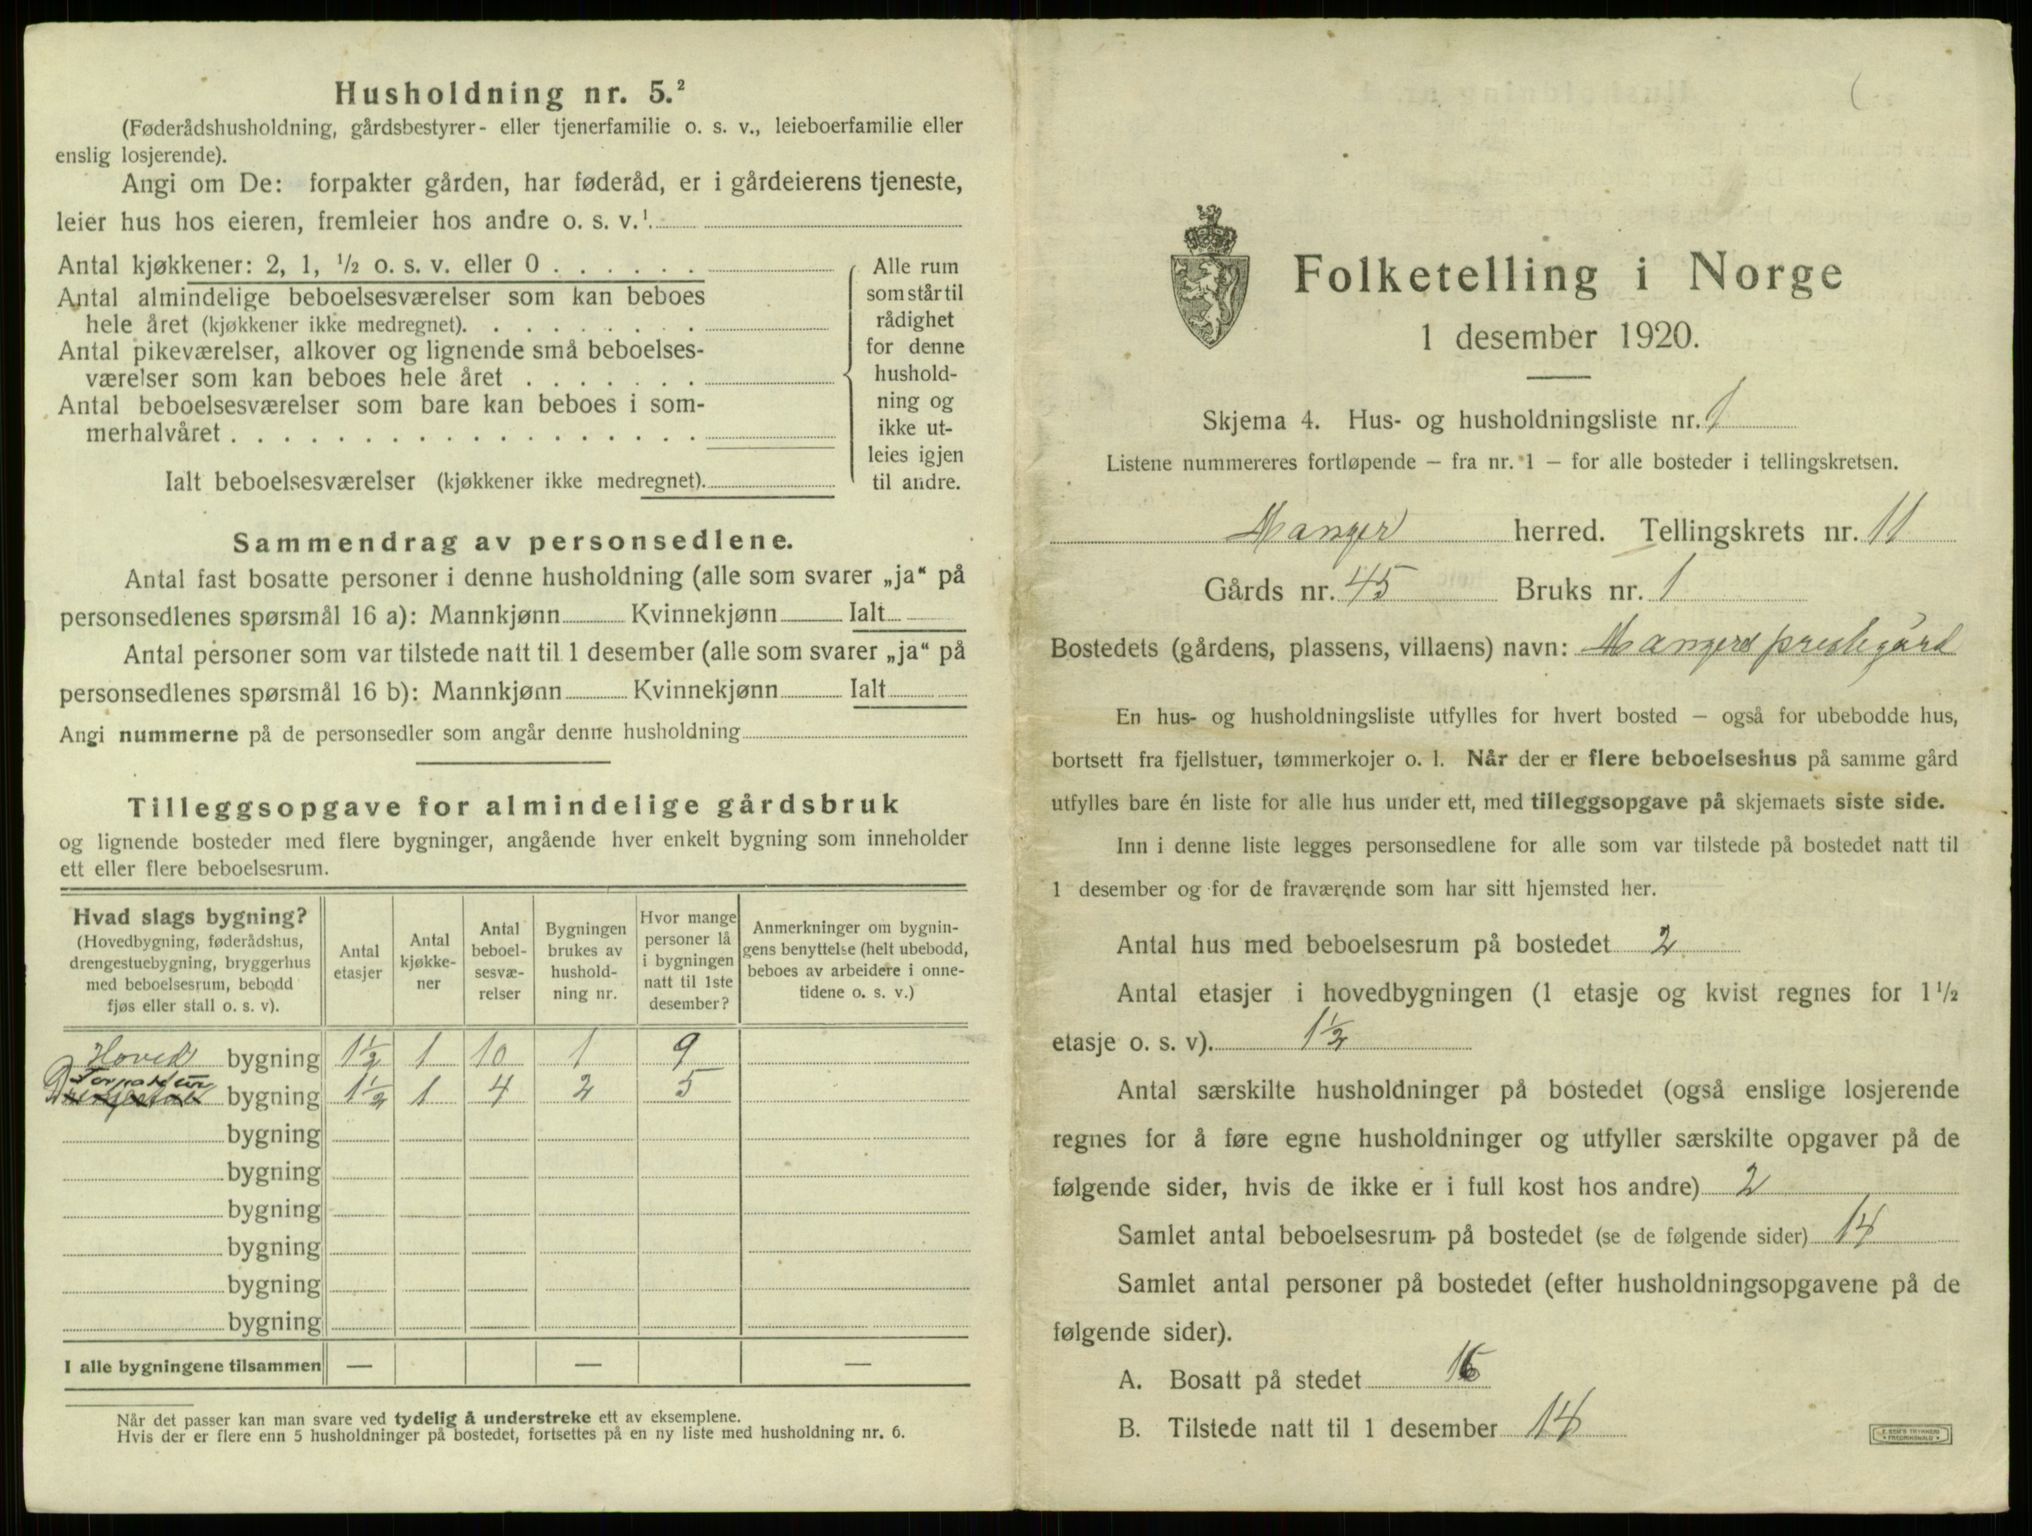 Husholdning nr. 5.²
(Føderådshusholdning, gårdsbestyrer- eller tjenerfamilie o. s. v., leieboerfamilie eller
enslig losjerende).
Angi om De: forpakter gården, har føderåd, er i gårdeierens tjeneste,
leier hus hos eieren, fremleier hos andre o. s. v.¹
Antal kjøkkener: 2, 1, ½ o. s. v. eller 0 . . . . . .
Antal almindelige beboelsesværelser som kan beboes
hele året (kjøkkener ikke medregnet). . . . . . . . .
Antal pikeværelser, alkover og lignende små beboelses-
værelser som kan beboes hele året . . . . . . .
Antal beboelsesværelser som bare kan beboes i som-
merhalvåret . . . . . . . . . . . . . . . . . .
Ialt beboelsesværelser (kjøkkener ikke medregnet).
Alle rum
som står til
rådighet
for denne
hushold-
ning og
ikke ut-
leies igjen
til andre.
Sammendrag av personsedlene.
Antal fast bosatte personer i denne husholdning (alle som svarer „ja“ på
personsedlenes spørsmål 16 a): Mannkjønn Kvinnekjønn Ialt
Antal personer som var tilstede natt til 1 desember (alle som svarer „ja“ på
personsedlenes spørsmål 16 b): Mannkjønn Kvinnekjønn Ialt
Angi nummerne på de personsedler som angår denne husholdning
Tilleggsopgave for almindelige gårdsbruk
og lignende bosteder med flere bygninger, angående hver enkelt bygning som inneholder
ett eller flere beboelsesrum.
Hvad slags bygning?
(Hovedbygning, føderådshus,
drengestuebygning, bryggerhus
med beboelsesrum, bebodd
fjøs eller stall o. s. v).
Antal
etasjer
Antal
kjøkke-
ner
Antal
beboel-
sesvæ-
relser
Bygningen
brukes av
hushold-
ning nr.
Hvor mange
personer lå
i bygningen
natt til 1ste
desember?
Anmerkninger om bygnin-
gens benyttelse (helt ubebodd,
beboes av arbeidere i onne-
tidene o. s. v.)
Hoved bygning 1½ 1 10 1 9
Forpakter bygning 1½ 1 4 2 5
bygning
bygning
bygning
bygning
bygning
bygning
I alle bygningene tilsammen — — —
Når det passer kan man svare ved tydelig å understreke ett av eksemplene.
Hvis der er flere enn 5 husholdninger på bostedet, fortsettes på en ny liste med husholdning nr. 6.
Folketelling i Norge
1 desember 1920.
Skjema 4. Hus- og husholdningsliste nr. 1
Listene nummereres fortløpende – fra nr. 1 – for alle bosteder i tellingskretsen.
Manger herred. Tellingskrets nr. 11
Gårds nr. 45 Bruks nr. 1
Bostedets (gårdens, plassens, villaens) navn: Mangers prestegård
En hus- og husholdningsliste utfylles for hvert bosted – også for ubebodde hus,
bortsett fra fjellstuer, tømmerkojer o. l. Når der er flere beboelseshus på samme gård
utfylles bare én liste for alle hus under ett, med tilleggsopgave på skjemaets siste side.
Inn i denne liste legges personsedlene for alle som var tilstede på bostedet natt til
1 desember og for de fraværende som har sitt hjemsted her.
Antal hus med beboelsesrum på bostedet 2
Antal etasjer i hovedbygningen (1 etasje og kvist regnes for 1½
etasje o. s. v). 1½
Antal særskilte husholdninger på bostedet (også enslige losjerende
regnes for å føre egne husholdninger og utfyller særskilte opgaver på de
følgende sider, hvis de ikke er i full kost hos andre) 2
Samlet antal beboelsesrum på bostedet (se de følgende sider) 14
Samlet antal personer på bostedet (efter husholdningsopgavene på de
følgende sider).
A. Bosatt på stedet 16
B. Tilstede natt til 1 desember 14
E. SEM'S TRYKKERI
FREDRIKSHALD